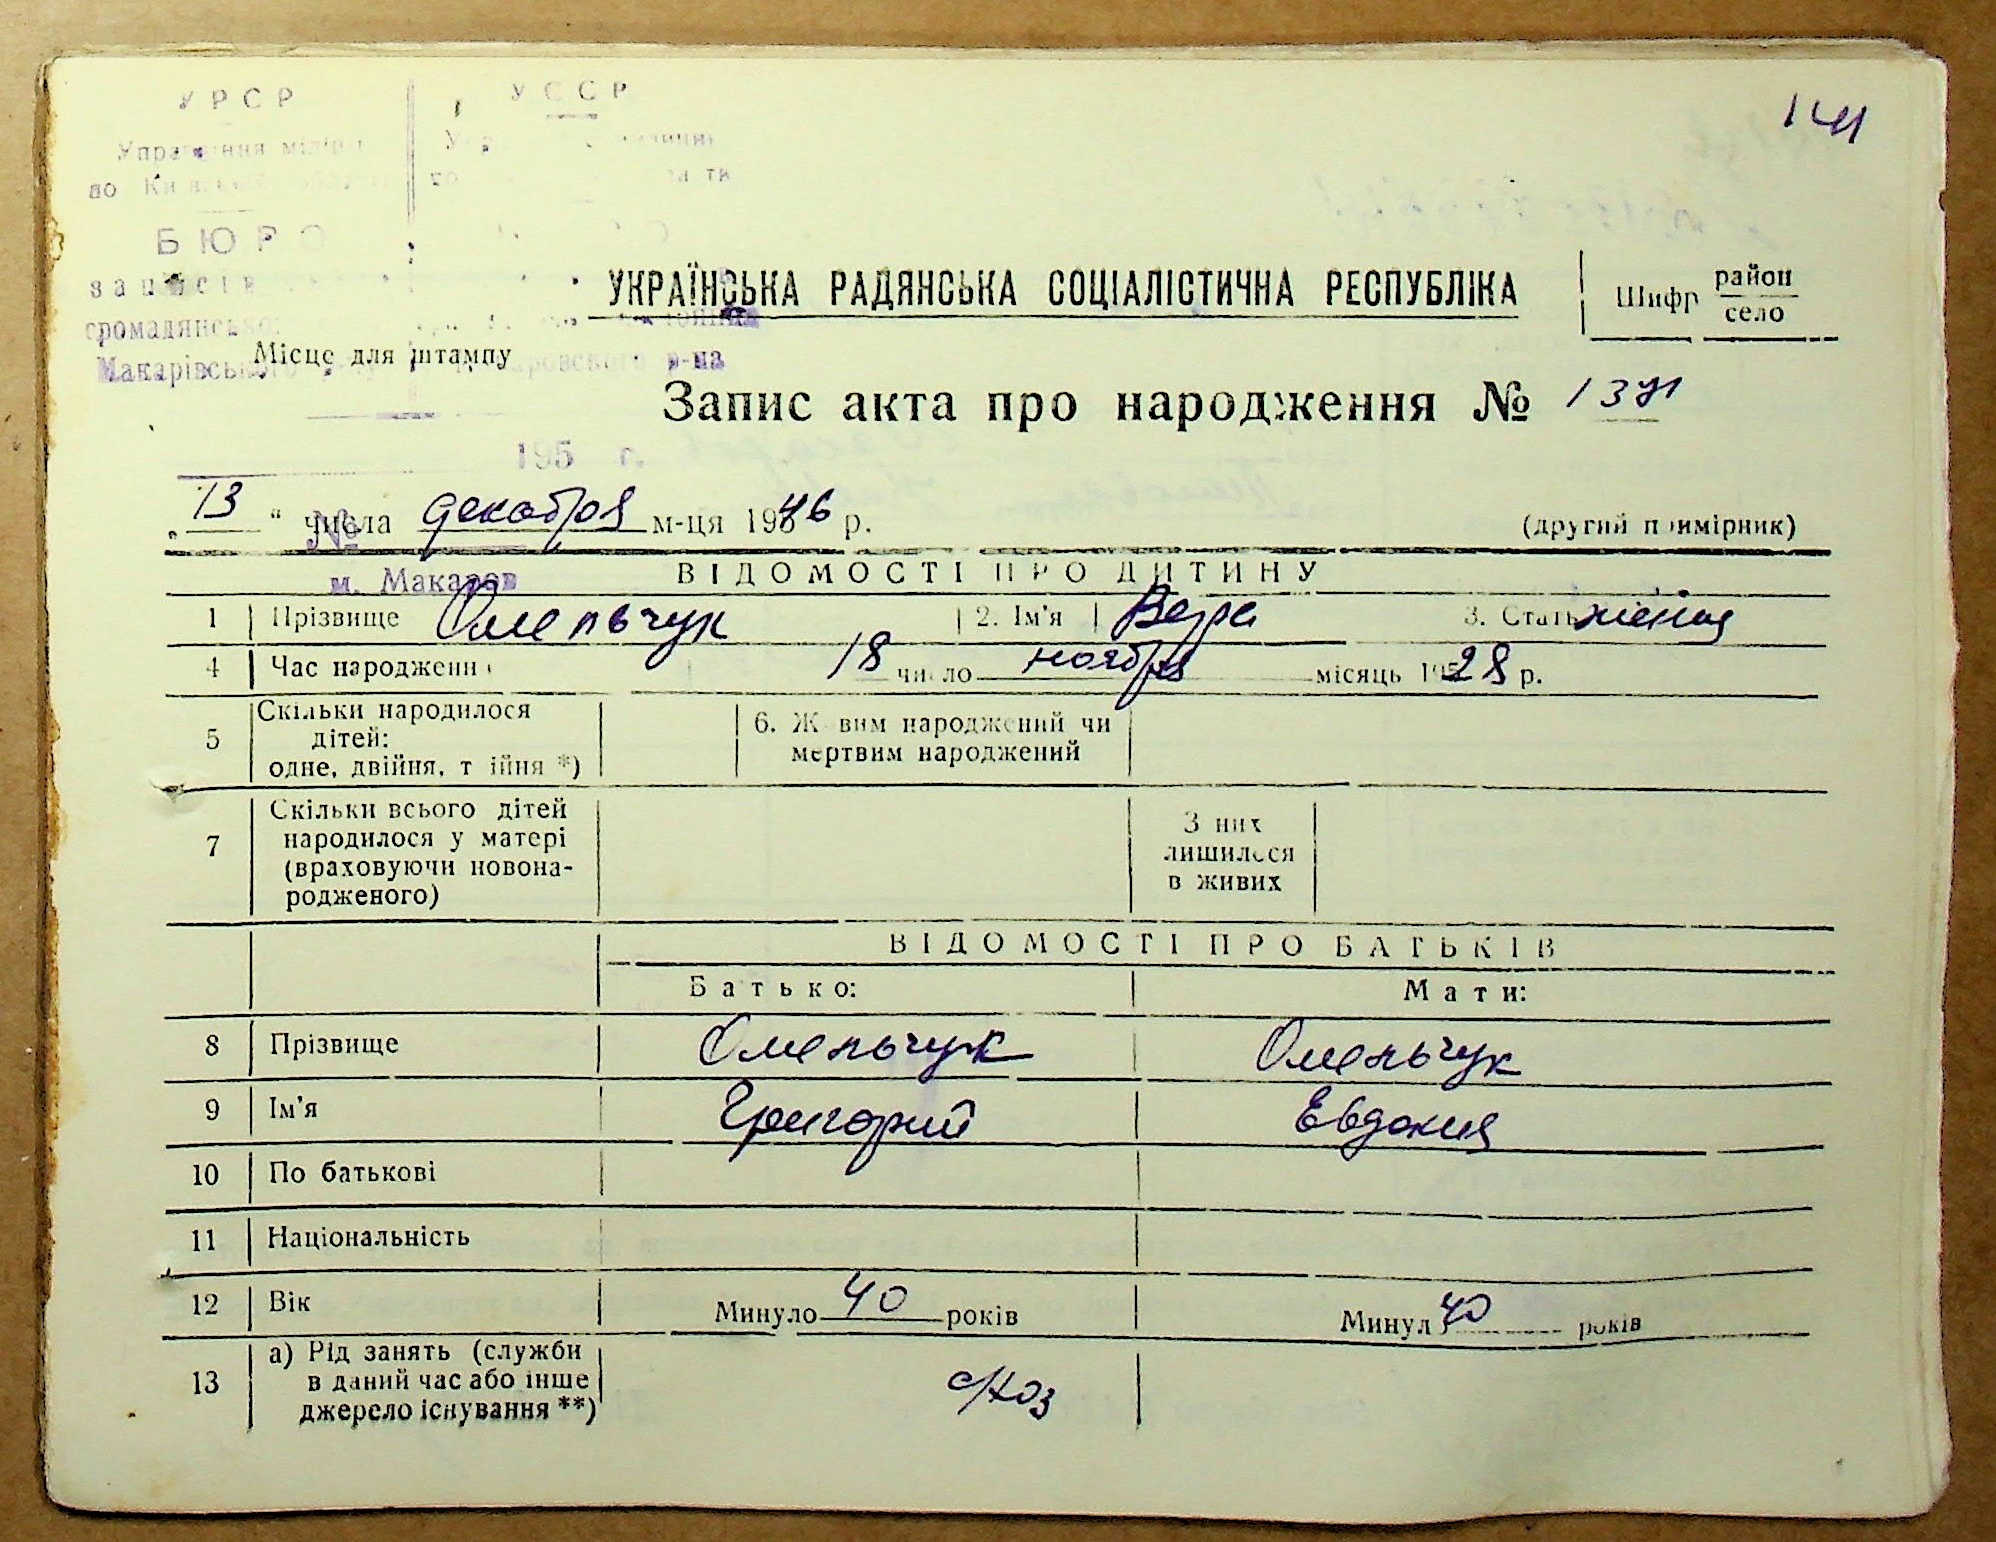 УРСР
УССР
БЮРО
м. Макаров
195 г.
№
УКРАЇНСЬКА РАДЯНСЬКА СОЦІАЛІСТИЧНА РЕСПУБЛІКА
Шифр район
село
Місце для штампу
Запис акта про народження №
„13“ числа декабря м-ця 1946 р.
(другий примірник)
ВІДОМОСТІ ПРО ДИТИНУ
1 Прізвище Омельчук 2. Ім'я Вера 3. Стать
4 Час народження 18 число ноября місяць 1928 р.
5 Скільки народилося
дітей:
одне, двійня, трійня *)
6. Живим народжений чи
мертвим народжений
7 Скільки всього дітей
народилося у матері
(враховуючи новона-
родженого)
З них
лишилося
в живих
ВІДОМОСТІ ПРО БАТЬКІВ
Батько: Мати:
8 Прізвище Омельчук Омельчук
9 Ім'я Григорий Евдокия
10 По батькові
11 Національність
12 Вік Минуло 40 років Минуло 40 років
13 а) Рід занять (служби
в даний час або інше
джерело існування **)
с/хоз